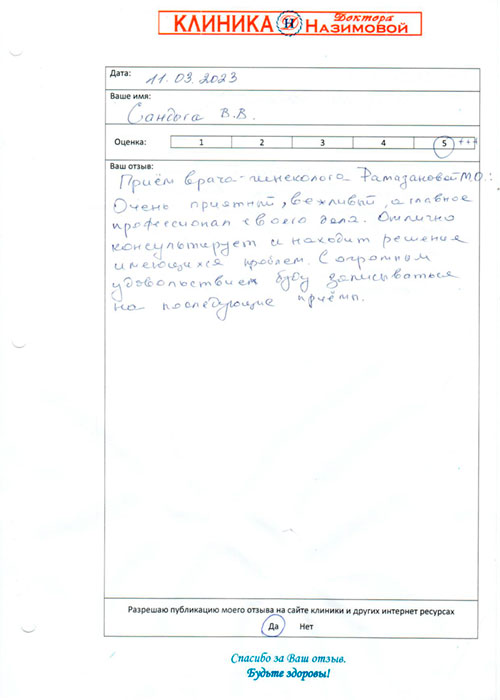 КЛИНИКА Доктора НАЗИМОВОЙ
Дата: 11.03.2023
Ваше имя:
Сандога В.В.
Оценка: 1 2 3 4 5 +++
Ваш отзыв:
Приём врача-гинеколога Рамазановой М.О.:
Очень приятный, вежливый, а главное
профессионал своего дела. Отлично
консультирует и находит решения
имеющихся проблем. С огромным
удовольствием буду записываться
на последующие приёмы.
Разрешаю публикацию моего отзыва на сайте клиники и других интернет ресурсах
Да Нет
Спасибо за Ваш отзыв.
Будьте здоровы!